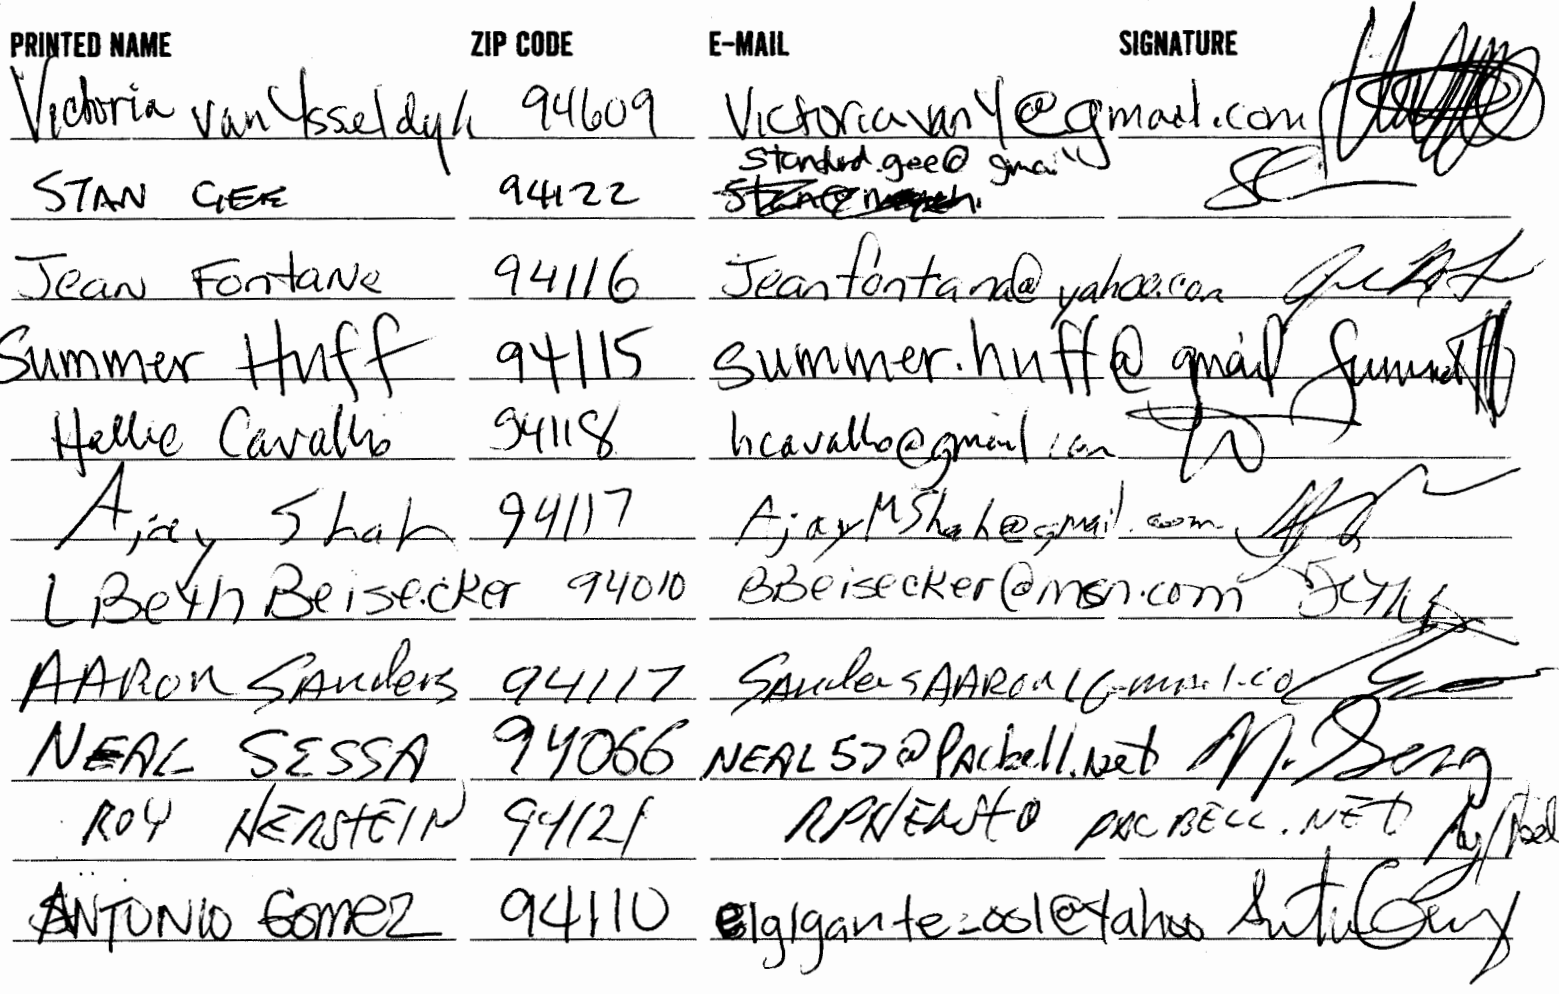 PRINTED NAME ZIP CODE E-MAIL SIGNATURE
Victoria van Ysseldyk 94609 Victoriavany@gmail.com
standard.gee@gmail
STAN GEE 94122
Jean Fontana 94116 Jeanfontana@yahoo.com
Summer Huff 94115 summer.huff@gmail
Hallie Cavallo 94118 hcavallo@gmail.com
Ajay Shah 94117 AjayMShah@gmail.com
L Beth Beisecker 94010 BBeisecker@msn.com
AARon SAnders 94117
NEAL SESSA 94066 NEAL57@PAcbell.net
ROY HERSTEIN 94121 PACBELL.NET
ANTONIO GomeZ 94110 elgigante2001@Yahoo